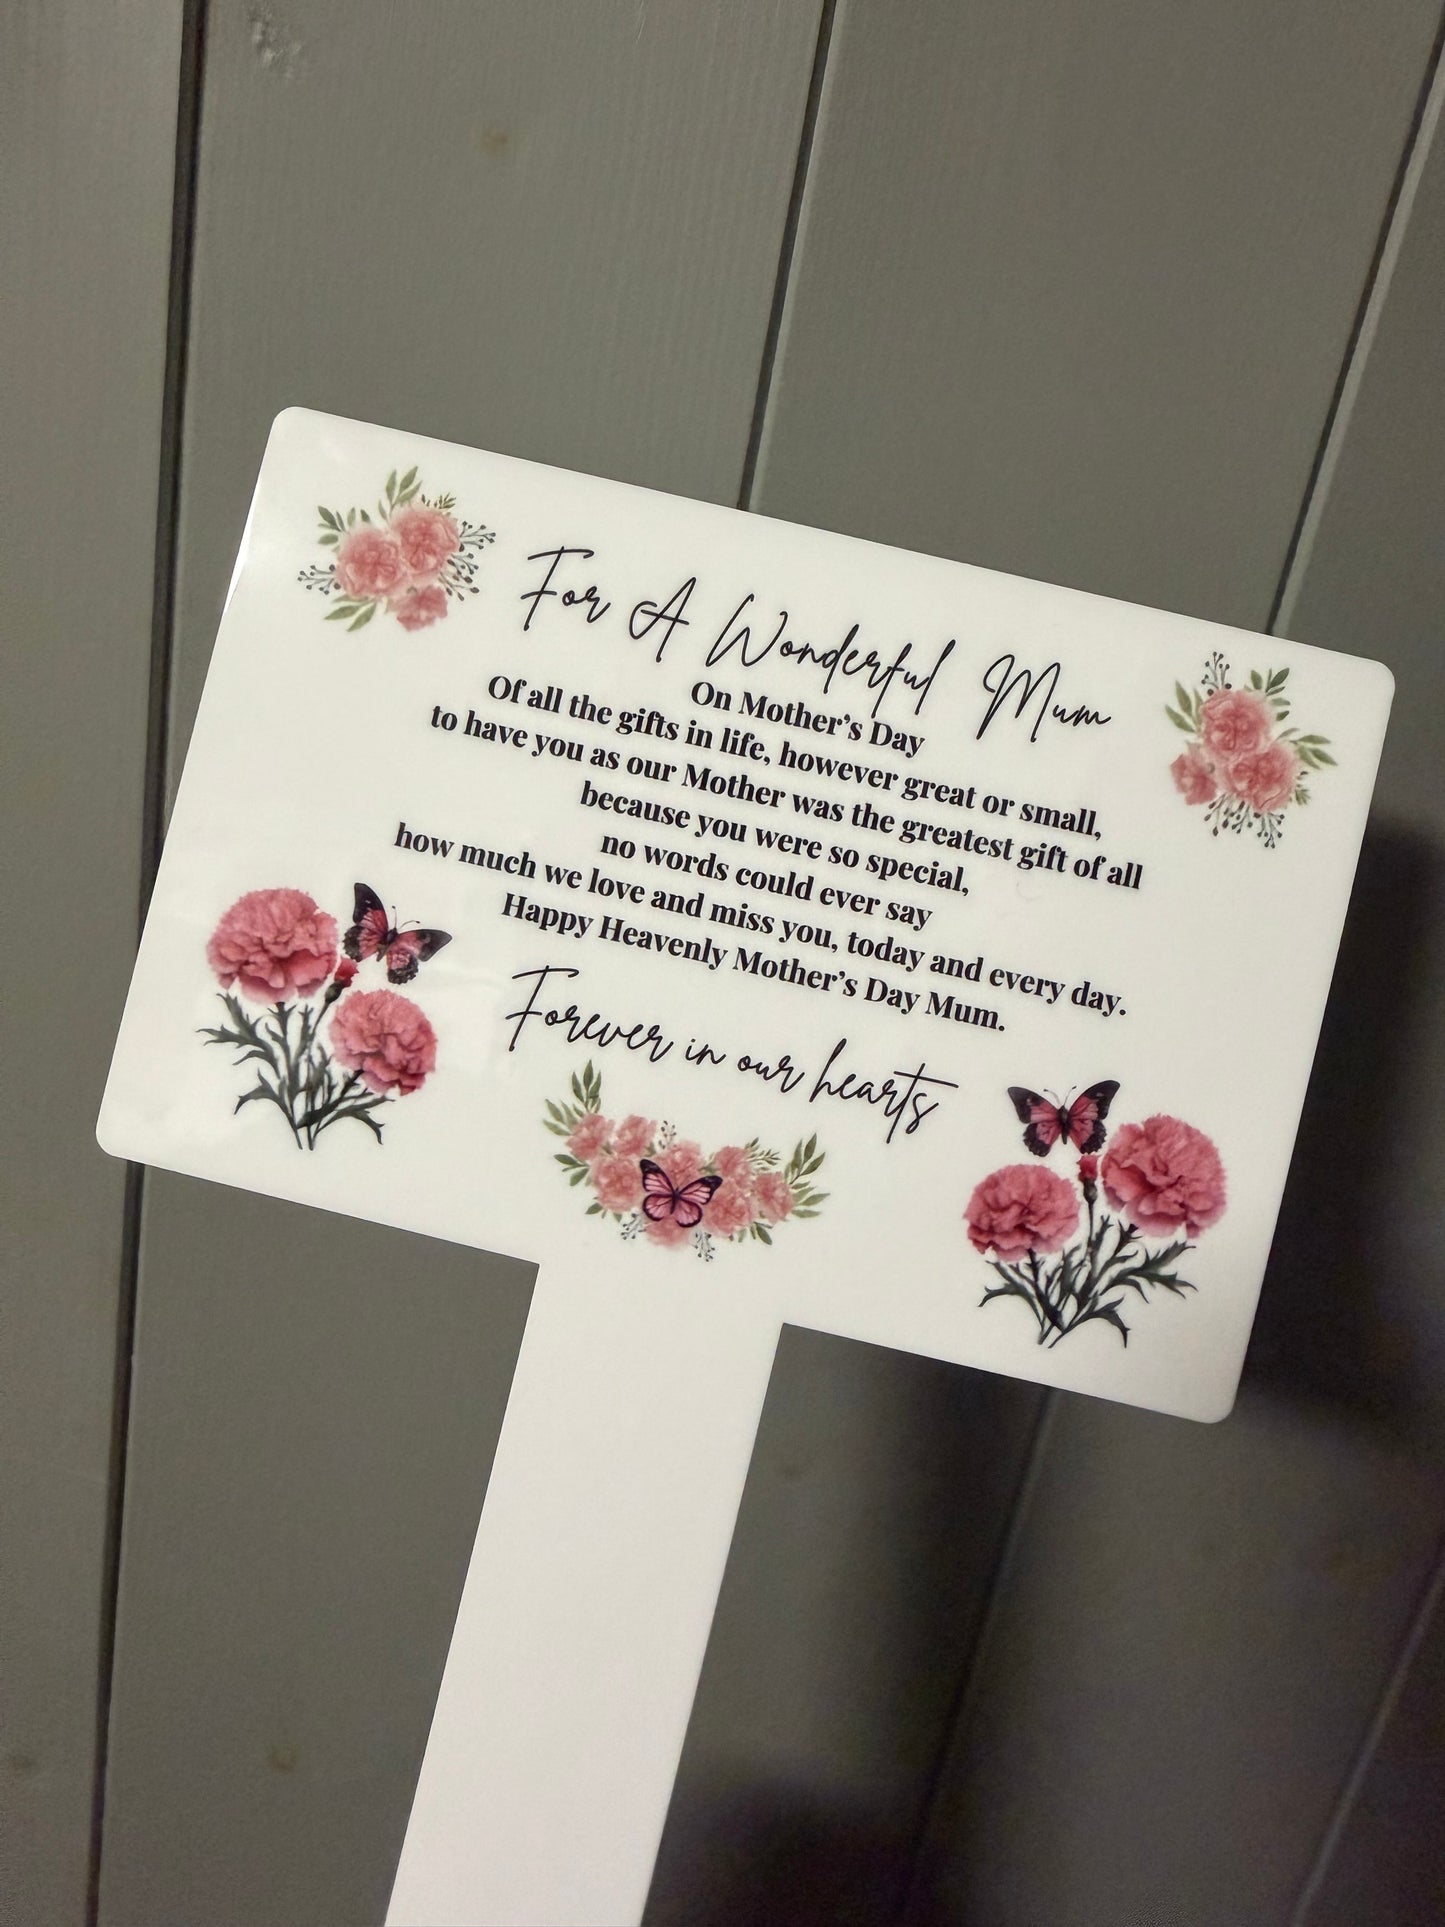 For A Wonderful Mum
On Mother's Day
Of all the gifts in life, however great or small,
to have you as our Mother was the greatest gift of all
because you were so special,
no words could ever say
how much we love and miss you, today and every day.
Happy Heavenly Mother's Day Mum.
Forever in our hearts